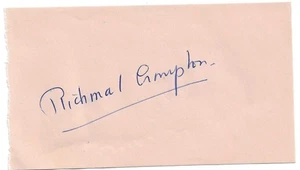 Richmal Crompton.